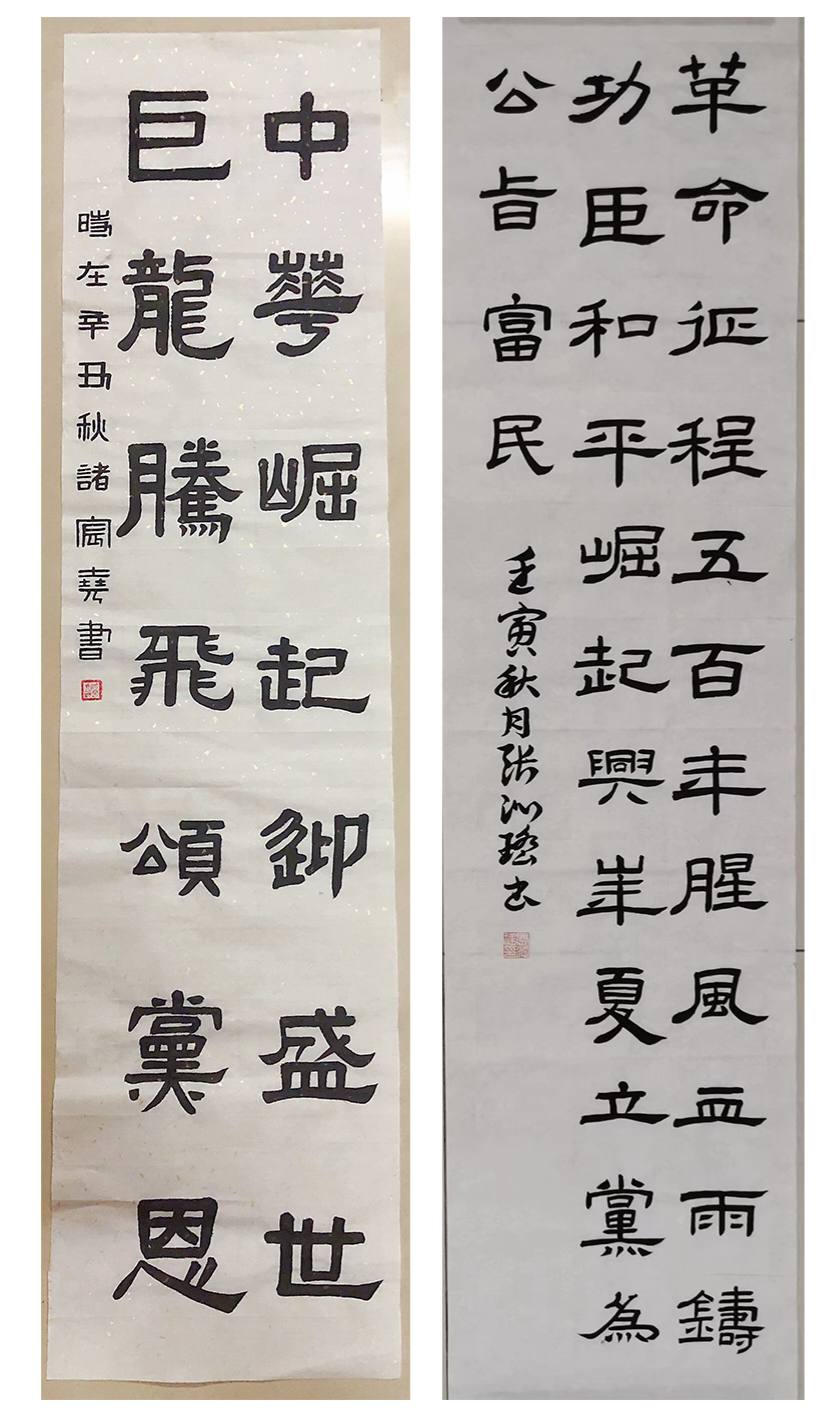 中華崛起迎盛世
巨龍騰飛頌黨恩
時在辛丑秋諸宸堯書
革命征程五百年腥風血雨鑄
功臣和平崛起興崋夏立黨為
公旨富民
壬寅秋月張沁瑤书